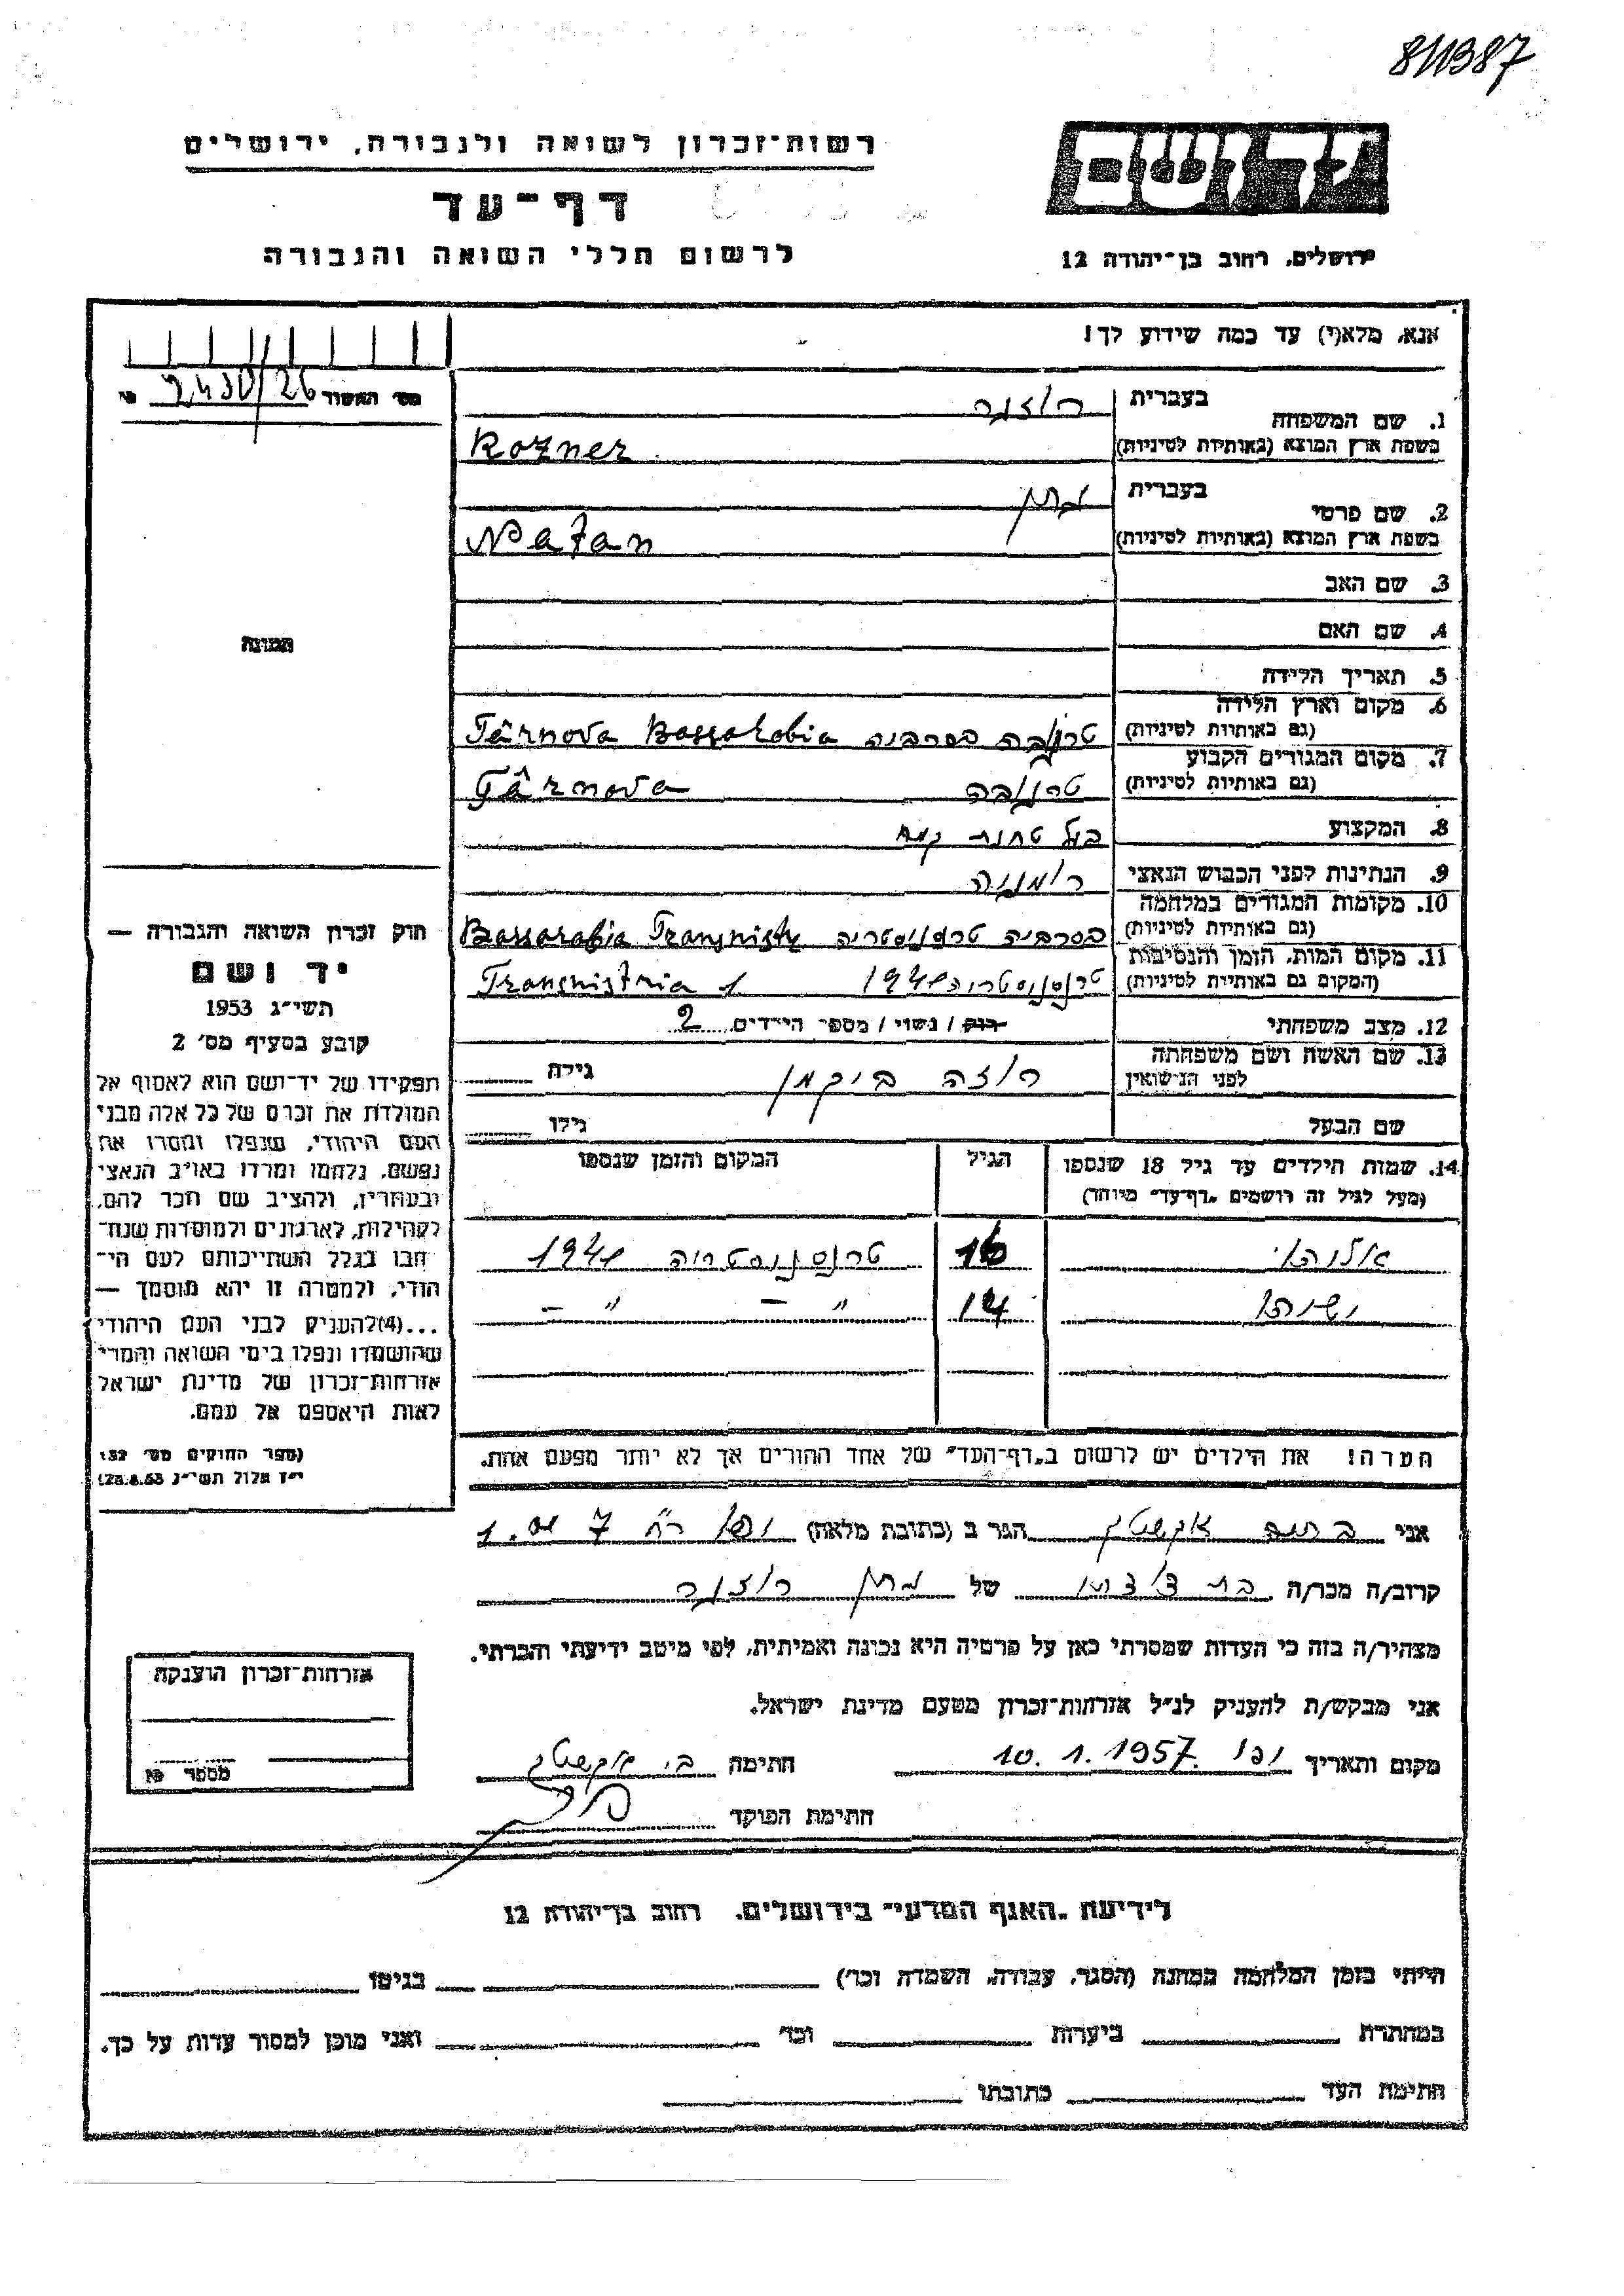 811387
רשות־זכרון לשואה ולגבורה, ירושלים
דף־עד
לרשום חללי השואה והגבורה
יד ושם
ירושלים, רחוב בן־יהודה 12
אנא, מלא(י) עד כמה שידוע לך!
1. שם המשפחה בעברית רוזנר
בשפת ארץ המוצא (באותיות לטיניות) Rozner
2. שם פרטי בעברית נתן
בשפת ארץ המוצא (באותיות לטיניות) Natan
3. שם האב
4. שם האם
5. תאריך הלידה
6. מקום וארץ הלידה
(גם באותיות לטיניות) טרנובה בסרביה Târnova Bassarabia
7. מקום המגורים הקבוע
(גם באותיות לטיניות) טרנובה Târnova
8. המקצוע בעל טחנת קמח
9. הנתינות לפני הכבוש הנאצי רומניה
10. מקומות המגורים במלחמה
(גם באותיות לטיניות) בסרביה טרנסניסטריה Bassarabia
11. מקום המות, הזמן והנסיבות
(המקום גם באותיות לטיניות) 1941 Transnistria
12. מצב משפחתי רווק / נשוי / מספר הילדים 2
13. שם האשה ושם משפחתה
לפני הנישואין רוזה ביקמן גילה
שם הבעל גילו
14. שמות הילדים עד גיל 18 שנספו הגיל המקום והזמן שנספו
(מעל לגיל זה רושמים "דף־עד" מיוחד)
16 טרנסניסטריה 1941
14 — " — " —
הערה! את הילדים יש לרשום ב"דף־העד" של אחד ההורים אך לא יותר מפעם אחת.
מס׳ האשור 2430/26
תמונה
חוק זכרון השואה והגבורה —
יד ושם
תשי״ג 1953
קובע בסעיף מס׳ 2
תפקידו של יד־ושם הוא לאסוף אל
המולדת את זכרם של כל אלה מבני
העם היהודי, שנפלו ומסרו את
נפשם, נלחמו ומרדו באויב הנאצי
ובעוזריו, ולהציב שם וזכר להם,
לקהילות, לארגונים ולמוסדות שנח־
רבו בגלל השתייכותם לעם הי־
הודי, ולמטרה זו יהא מוסמך —
...(4) להעניק לבני העם היהודי
שהושמדו ונפלו בימי השואה והמרי
אזרחות־זכרון של מדינת ישראל
לאות היאספם אל עמם.
(ספר החוקים מס׳ 132
י״ז אלול תשי״ג 28.8.53)
אני אקשטין הגר ב (כתובת מלאה)
קרוב/ה מכר/ה של נתן רוזנר
מצהיר/ה בזה כי העדות שמסרתי כאן על פרטיה היא נכונה ואמיתית, לפי מיטב ידיעתי והכרתי.
אני מבקש/ת להעניק לנ״ל אזרחות־זכרון מטעם מדינת ישראל.
מקום ותאריך 10.1.1957 חתימה אקשטין
חתימת הפוקד
אזרחות־זכרון הוענקה
מספר
לידיעת "האגף המדעי" בירושלים, רחוב בן־יהודה 12
הייתי בזמן המלחמה במחנה (הסגר, עבודה, השמדה וכו׳) בגיטו
במחתרת ביערות וכו׳ ואני מוכן למסור עדות על כך.
חתימת העד כתובתו